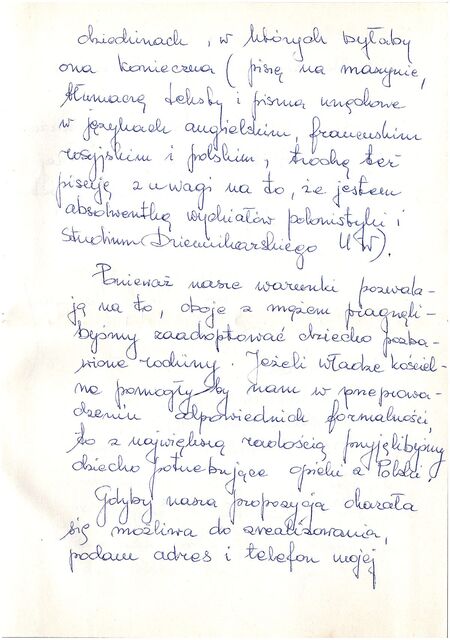 dziedzinach, w których byłaby
ona konieczna (piszę na maszynie,
tłumaczę teksty i pisma urzędowe
w językach angielskim, francuskim
rosyjskim i polskim, trochę też
piszę z uwagi na to, że jestem
absolwentką wydziałów polonistyki i
Studium Dziennikarskiego UW).
Ponieważ nasze warunki pozwala-
ją na to, oboje z mężem pragnęli-
byśmy zaadoptować dziecko pozba-
wione rodziny. Jeżeli władze kościel-
ne pomogłyby nam w przeprowa-
dzeniu odpowiednich formalności,
to z największą radością przyjęlibyśmy
dziecko potrzebujące opieki z Polski.
Gdyby nasza propozycja okazała
się możliwa do zrealizowania,
podam adres i telefon mojej